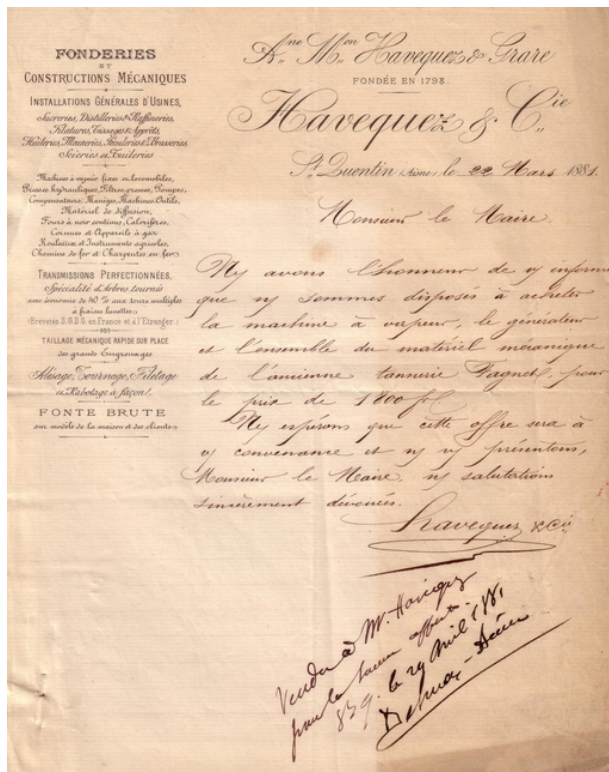 FONDERIES
ET
CONSTRUCTIONS MÉCANIQUES
INSTALLATIONS GÉNÉRALES D'USINES,
Sucreries, Distilleries & Raffineries,
Filatures, Tissages & Apprêts,
Huileries, Meuneries, Féculeries & Brasseries
Scieries et Tuileries
Machines à vapeur fixes et locomobiles,
Presses hydrauliques, Filtres-presses, Pompes,
Compensateurs, Manèges, Machines-Outils,
Matériel de diffusion,
Fours à noir continus, Calorifères,
Cornues et Appareils à gaz
Rouleaux et Instruments agricoles,
Chemins de fer et Charpentes en fer
TRANSMISSIONS PERFECTIONNÉES,
Spécialité d'Arbres tournés
avec économie de 40 % aux tours multiples
à fraises lunettes,
(Brevetés S.G.D.G. en France et à l'Etranger.)
TAILLAGE MÉCANIQUE RAPIDE SUR PLACE
des grands Engrenages
Alésage, Tournage, Filetage
et Rabotage à façon.
FONTE BRUTE
sur modèle de la maison et des clients
Anne Mon Havequez & Grare
FONDÉE EN 1793.
Havequez & Cie
St Quentin (Aisne) le 22 Mars 1881.
Monsieur le Maire.
Ns avons l'honneur de vs informer
que ns sommes disposés à acheter
la machine à vapeur, le générateur
et l'ensemble du matériel mécanique
de l'ancienne tannerie pour
le prix de 1800 f
Ns espérons que cette offre sera à
vs convenance et ns vs présentons,
Monsieur le Maire, ns salutations
sincèrement dévouées.
Havequez & Cie
Vendu à M. Havequez
pour la somme offerte.
le 29 Avril 1881